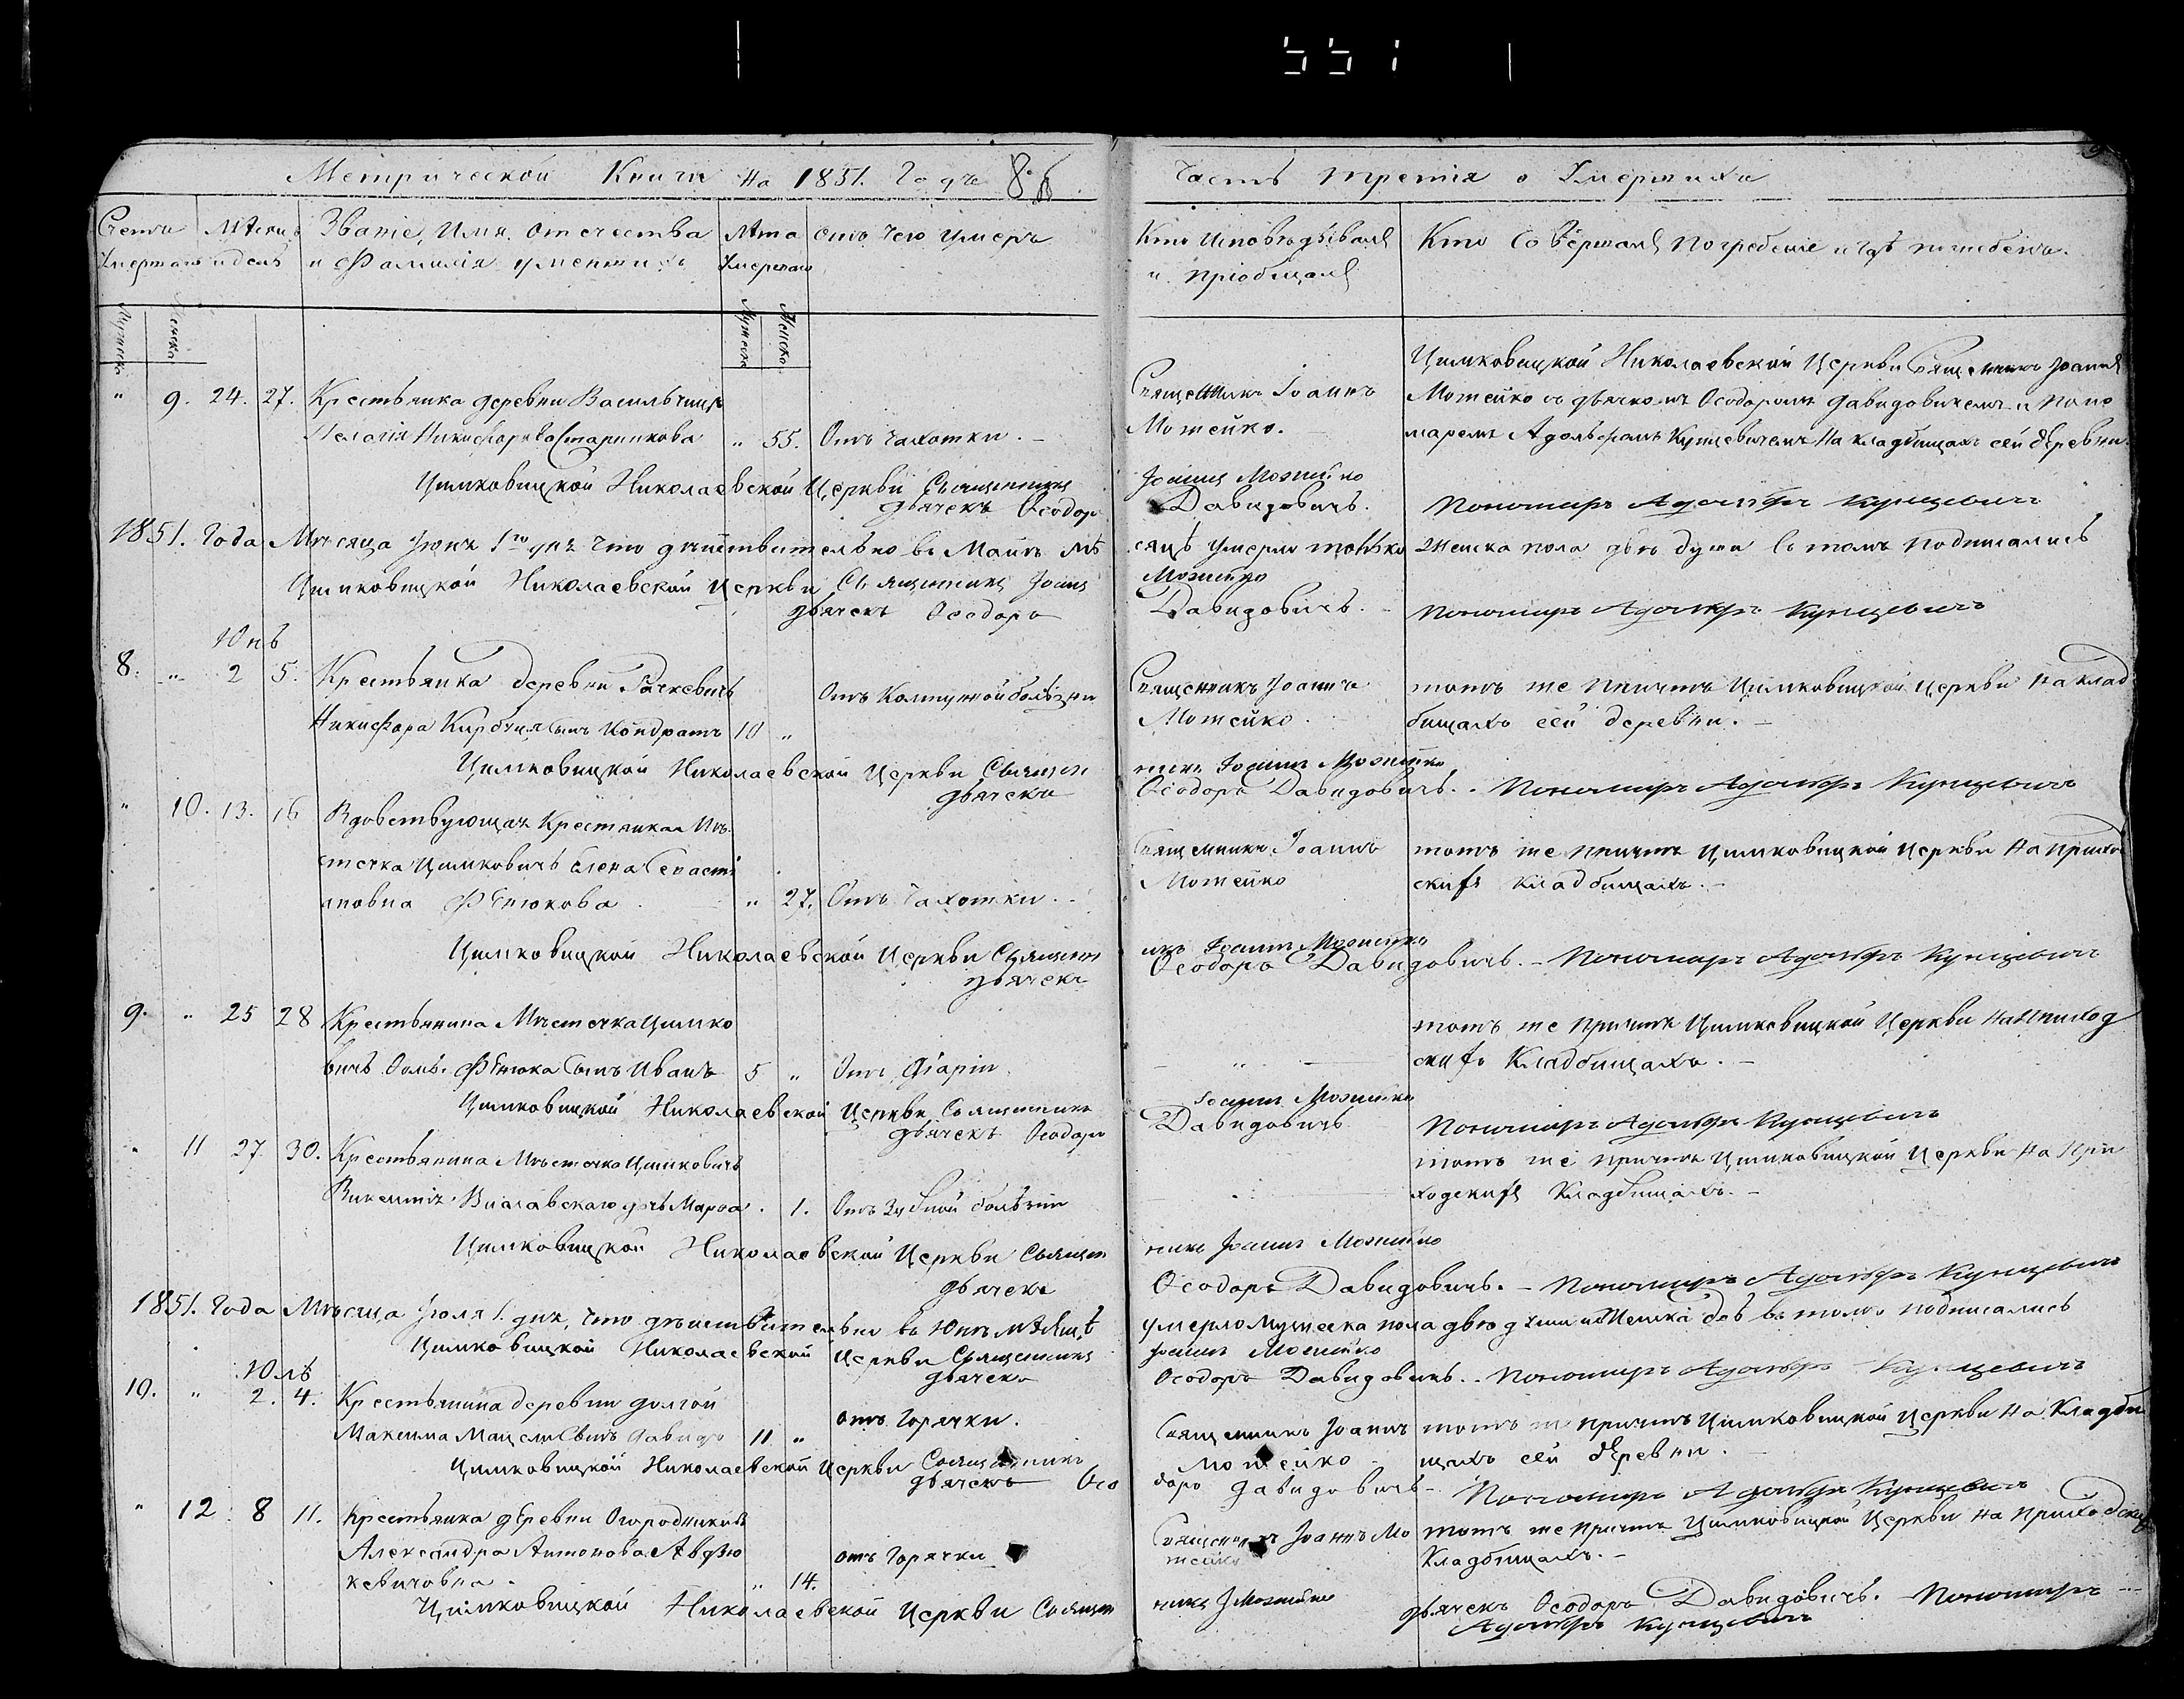 Метрической Книги На 1851. Годъ 8.
Часть третія о Умершихъ
Счетъ Умершихъ
Мѣсяцъ и день
Званіе, Имя, Отечество и Фамилія умершихъ
Лѣта Умершаго
Отъ чего умеръ
Кто Исповѣдывалъ и пріобщалъ
Кто Совершалъ Погребеніе и гдѣ погребенъ.
Мужеска
Женска
Мужеска
Женска
" 9. 24. 27. Крестьянка деревни
Никифорова " 55. Отъ чахотки.
Священникъ Іоаннъ
Мотейко.
Цимковицкой Николаевской Церкви Священникъ Іоаннъ
Мотейко съ дьячкомъ Ѳеодоромъ Давидовичемъ и Поно
маремъ Адольфомъ Купцевичемъ На кладбищахъ сей деревни.
Цимковицкой Николаевской Церкви Священникъ Іоаннъ Мотейко
дьячекъ Ѳеодоръ Давидовичъ. Пономарь Адольфъ Купцевичъ
1851. Года Мѣсяца Іюня 1го дня что дѣйствительно въ Маіѣ мѣсяцѣ умерло только женска пола двѣ души въ томъ подписались
Цимковицкой Николаевской Церкви Священникъ Іоаннъ Мотейко
дьячекъ Ѳеодоръ Давидовичъ. Пономарь Адольфъ Купцевичъ
Юнь
8. " 2 5. Крестьянка деревни
Никифора сынъ Кондратъ 10 "
Отъ болѣзни
Священникъ Іоаннъ
Мотейко.
тотъ же Причтъ Цимковицкой Церкви На клад
бищахъ сей деревни.
Цимковицкой Николаевской Церкви Священникъ Іоаннъ Мотейко
дьячекъ Ѳеодоръ Давидовичъ. Пономарь Адольфъ Купцевичъ
" 10. 13. 16 Вдовствующая Крестьянка Мѣ
стечка Цимковичъ Елена Севасті
яновна " 27. Отъ Чахотки.
Священникъ Іоаннъ
Мотейко
тотъ же Причтъ Цимковицкой Церкви На приход
скихъ кладбищахъ.
Цимковицкой Николаевской Церкви Священникъ Іоаннъ Мотейко
дьячекъ Ѳеодоръ Давидовичъ. Пономарь Адольфъ Купцевичъ
9. " 25 28 Крестьянина Мѣстечка Цимко
вичъ сынъ Иванъ 5 "
тотъ же Причтъ Цимковицкой Церкви На приход
скихъ Кладбищахъ.
Цимковицкой Николаевской Церкви Священникъ Іоаннъ Мотейко
дьячекъ Ѳеодоръ Давидовичъ Пономарь Адольфъ Купцевичъ
" 11 27. 30. Крестьянина Мѣстечка Цимковичъ
Викентія дочь Марѳа " 1. Отъ Зубной болѣзни
тотъ же Причтъ Цимковицкой Церкви На При
ходскихъ Кладбищахъ.
Цимковицкой Николаевской Церкви Священникъ Іоаннъ Мотейко
дьячекъ Ѳеодоръ Давидовичъ. Пономарь Адольфъ Купцевичъ
1851. Года Мѣсяца Іюля 1. дня, что дѣйствительно въ Юнѣ мѣсяцѣ умерло мужеска пола двѣ души и женска двѣ въ томъ подписались
Цимковицкой Николаевской Церкви Священникъ Іоаннъ Мотейко
дьячекъ Ѳеодоръ Давидовичъ. Пономарь Адольфъ Купцевичъ
Юль
10. " 2. 4. Крестьянина деревни Долгой
Максима сынъ Давидъ 11 "
отъ Горячки.
Священникъ Іоаннъ
Мотейко
тотъ же Причтъ Цимковицкой Церкви На Кладби
щахъ сей деревни.
Цимковицкой Николаевской Церкви Священникъ
дьячекъ Ѳеодоръ Давидовичъ Пономарь Адольфъ Купцевичъ
" 12. 8 11. Крестьянка деревни Огородниковъ
Александра Антонова Авдю
кевичовна " 14.
отъ Горячки
Священникъ Іоаннъ Мо
тейко
тотъ же Причтъ Цимковицкой Церкви На Приходских
Кладбищахъ.
Цимковицкой Николаевской Церкви Священникъ І Мотейко
дьячекъ Ѳеодоръ Давидовичъ. Пономарь
Адольфъ Купцевичъ